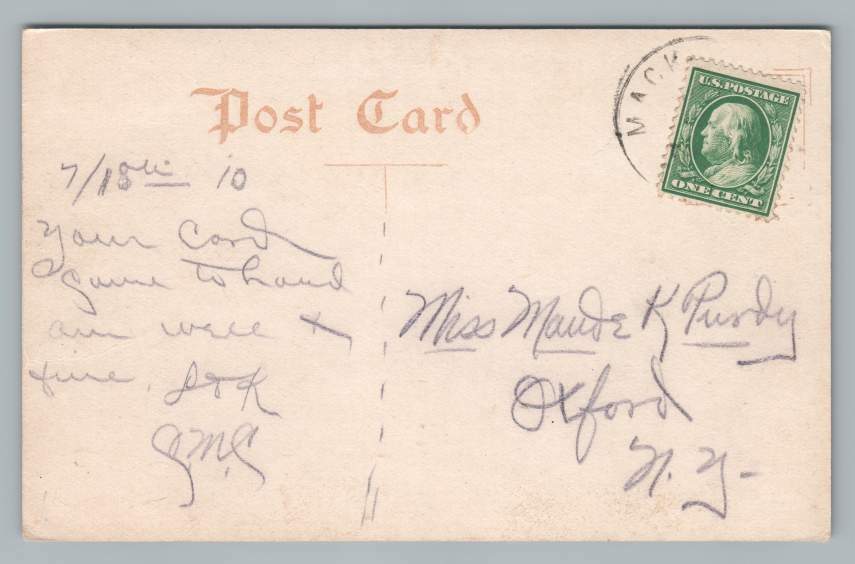 Post Card
MACK
U.S. POSTAGE
ONE CENT
7/18th 10
Your Card
Came to hand
am well &
fine.
G.M.G
Miss Maude K Purdy
Oxford
N. Y.